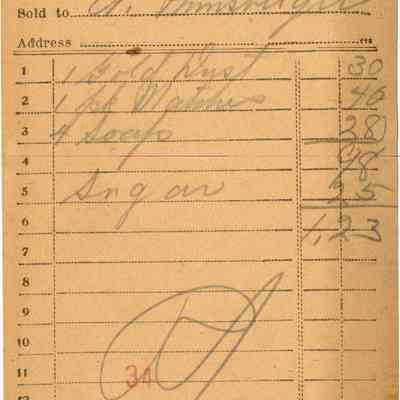 Sold to
Address
1 1 Gold Dust 30
2 1 pk Matches 40
3 4 Soaps 28
4 98
5 Sugar 25
6 1,23
7
8
9
10
11 34
12